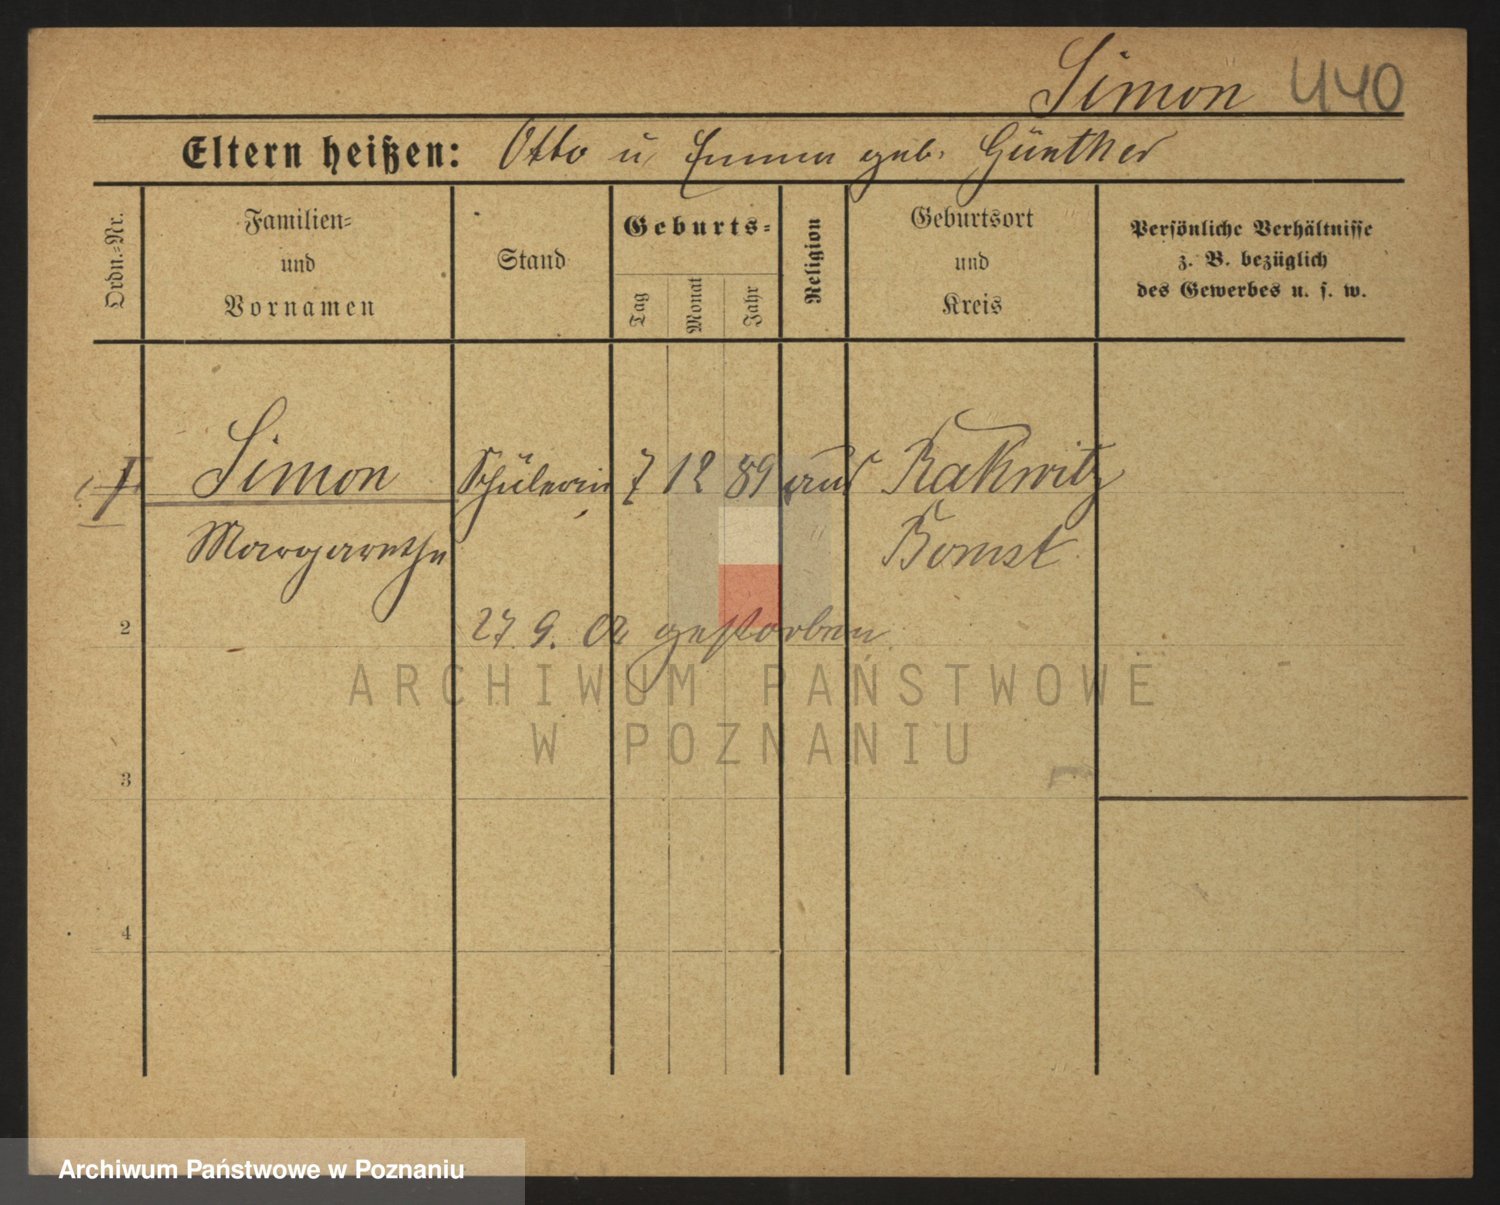 Simon 440
Eltern heißen: Otto u Emma geb. Günther
Ordn.-Nr.
Familien-
und
Vornamen
Stand
Geburts-
Tag
Monat
Jahr
Religion
Geburtsort
und
Kreis
Persönliche Verhältnisse
z. B. bezüglich
des Gewerbes u. s. w.
Simon Schülerin 7 12 89 Rakwitz
Margarethe Bomst
2 27. 9. 02 gestorben
ARCHIWUM PAŃSTWOWE
W POZNANIU
3
4
Archiwum Państwowe w Poznaniu